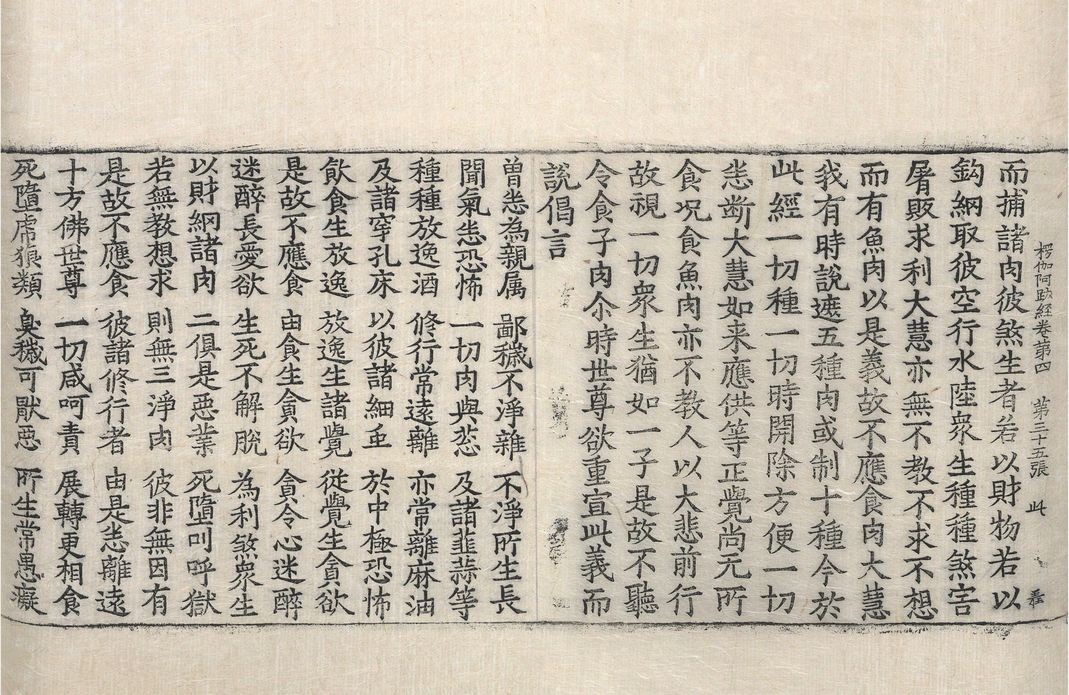 楞伽阿跋經卷第四 第三十五張 此
而捕諸肉彼煞生者若以財物若以
鈎網取彼空行水陸衆生種種煞害
屠販求利大慧亦無不教不求不想
而有魚肉以是義故不應食肉大慧
我有時說遮五種肉或制十種今於
此經一切種一切時開除方便一切
悉断大慧如来應供等正覺尚无所
食况食魚肉亦不教人以大悲前行
故視一切衆生猶如一子是故不聽
令食子肉尒時世尊欲重宣此義而
說偈言
曾悉為親属 鄙穢不淨雜 不淨所生長
聞氣悉恐怖 一切肉與葱 及諸韮蒜等
種種放逸酒 修行常遠離 亦常離麻油
及諸穿孔床 以彼諸細虫 於中極恐怖
飲食生放逸 放逸生諸覺 從覺生貪欲
是故不應食 由食生貪欲 貪令心迷醉
迷醉長愛欲 生死不解脫 為利煞衆生
以財網諸肉 二俱是惡業 死墮叫呼獄
若無教想求 則無三淨肉 彼非無因有
是故不應食 彼諸修行者 由是悉離遠
十方佛世尊 一切咸呵責 展轉更相食
死墮虎狼類 臭穢可猒惡 所生常愚癡